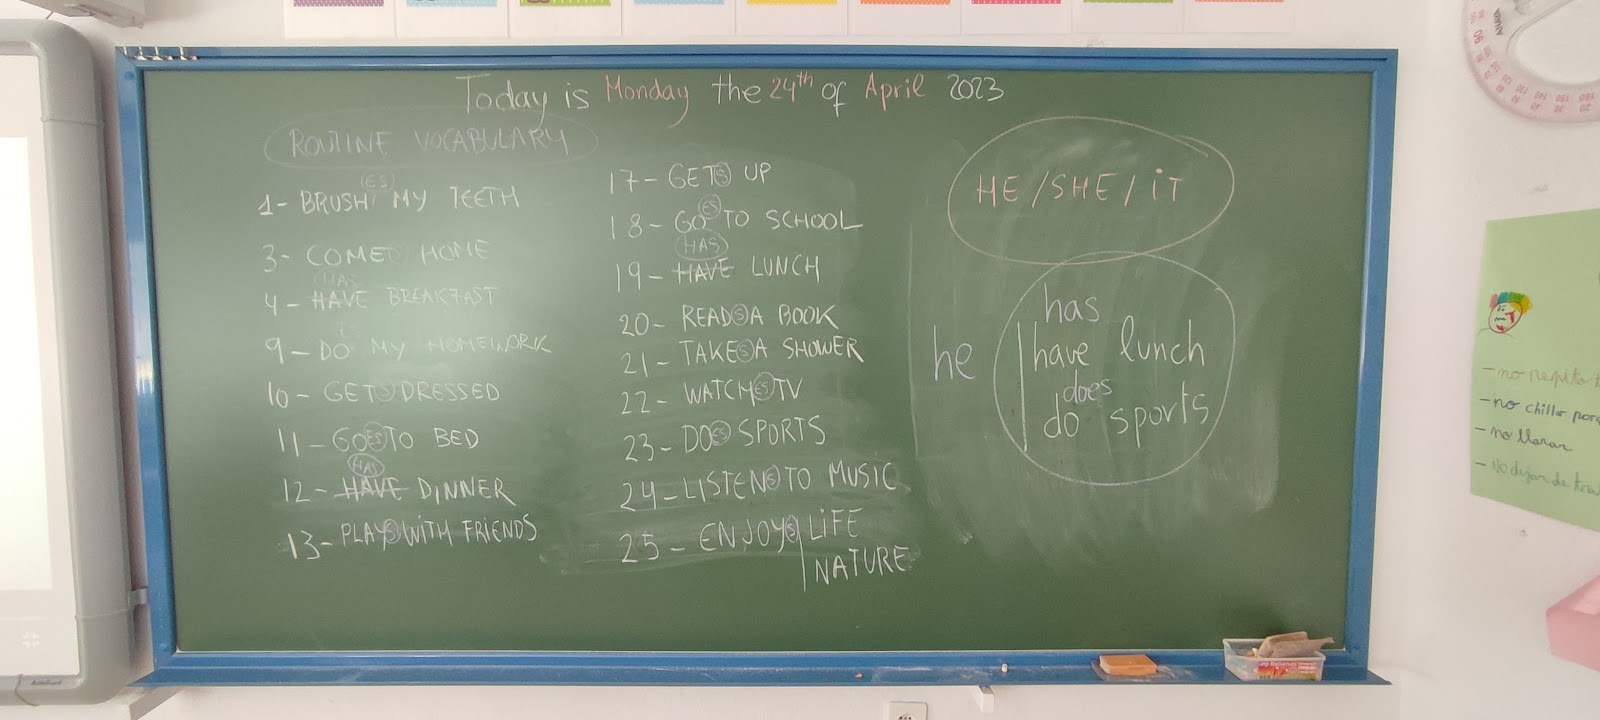 Today is Monday the 24th of April 2023
ROUTINE VOCABULARY
1- BRUSH(ES) MY TEETH
3- COMES HOME
HAS
4- HAVE BREAKFAST
9- DO MY HOMEWORK
10- GET(S) DRESSED
11- GO(ES) TO BED
HAS
12- HAVE DINNER
13- PLAY(S) WITH FRIENDS
17- GET(S) UP
18- GO(ES) TO SCHOOL
HAS
19- HAVE LUNCH
20- READ(S) A BOOK
21- TAKE(S) A SHOWER
22- WATCH(ES) TV
23- DO(ES) SPORTS
24- LISTEN(S) TO MUSIC
25- ENJOY(S) LiFE
NATURE
HE/SHE/iT
has
he have lunch
does
do sports
- no repito
- no chillo
- no llorar
- No dejar de